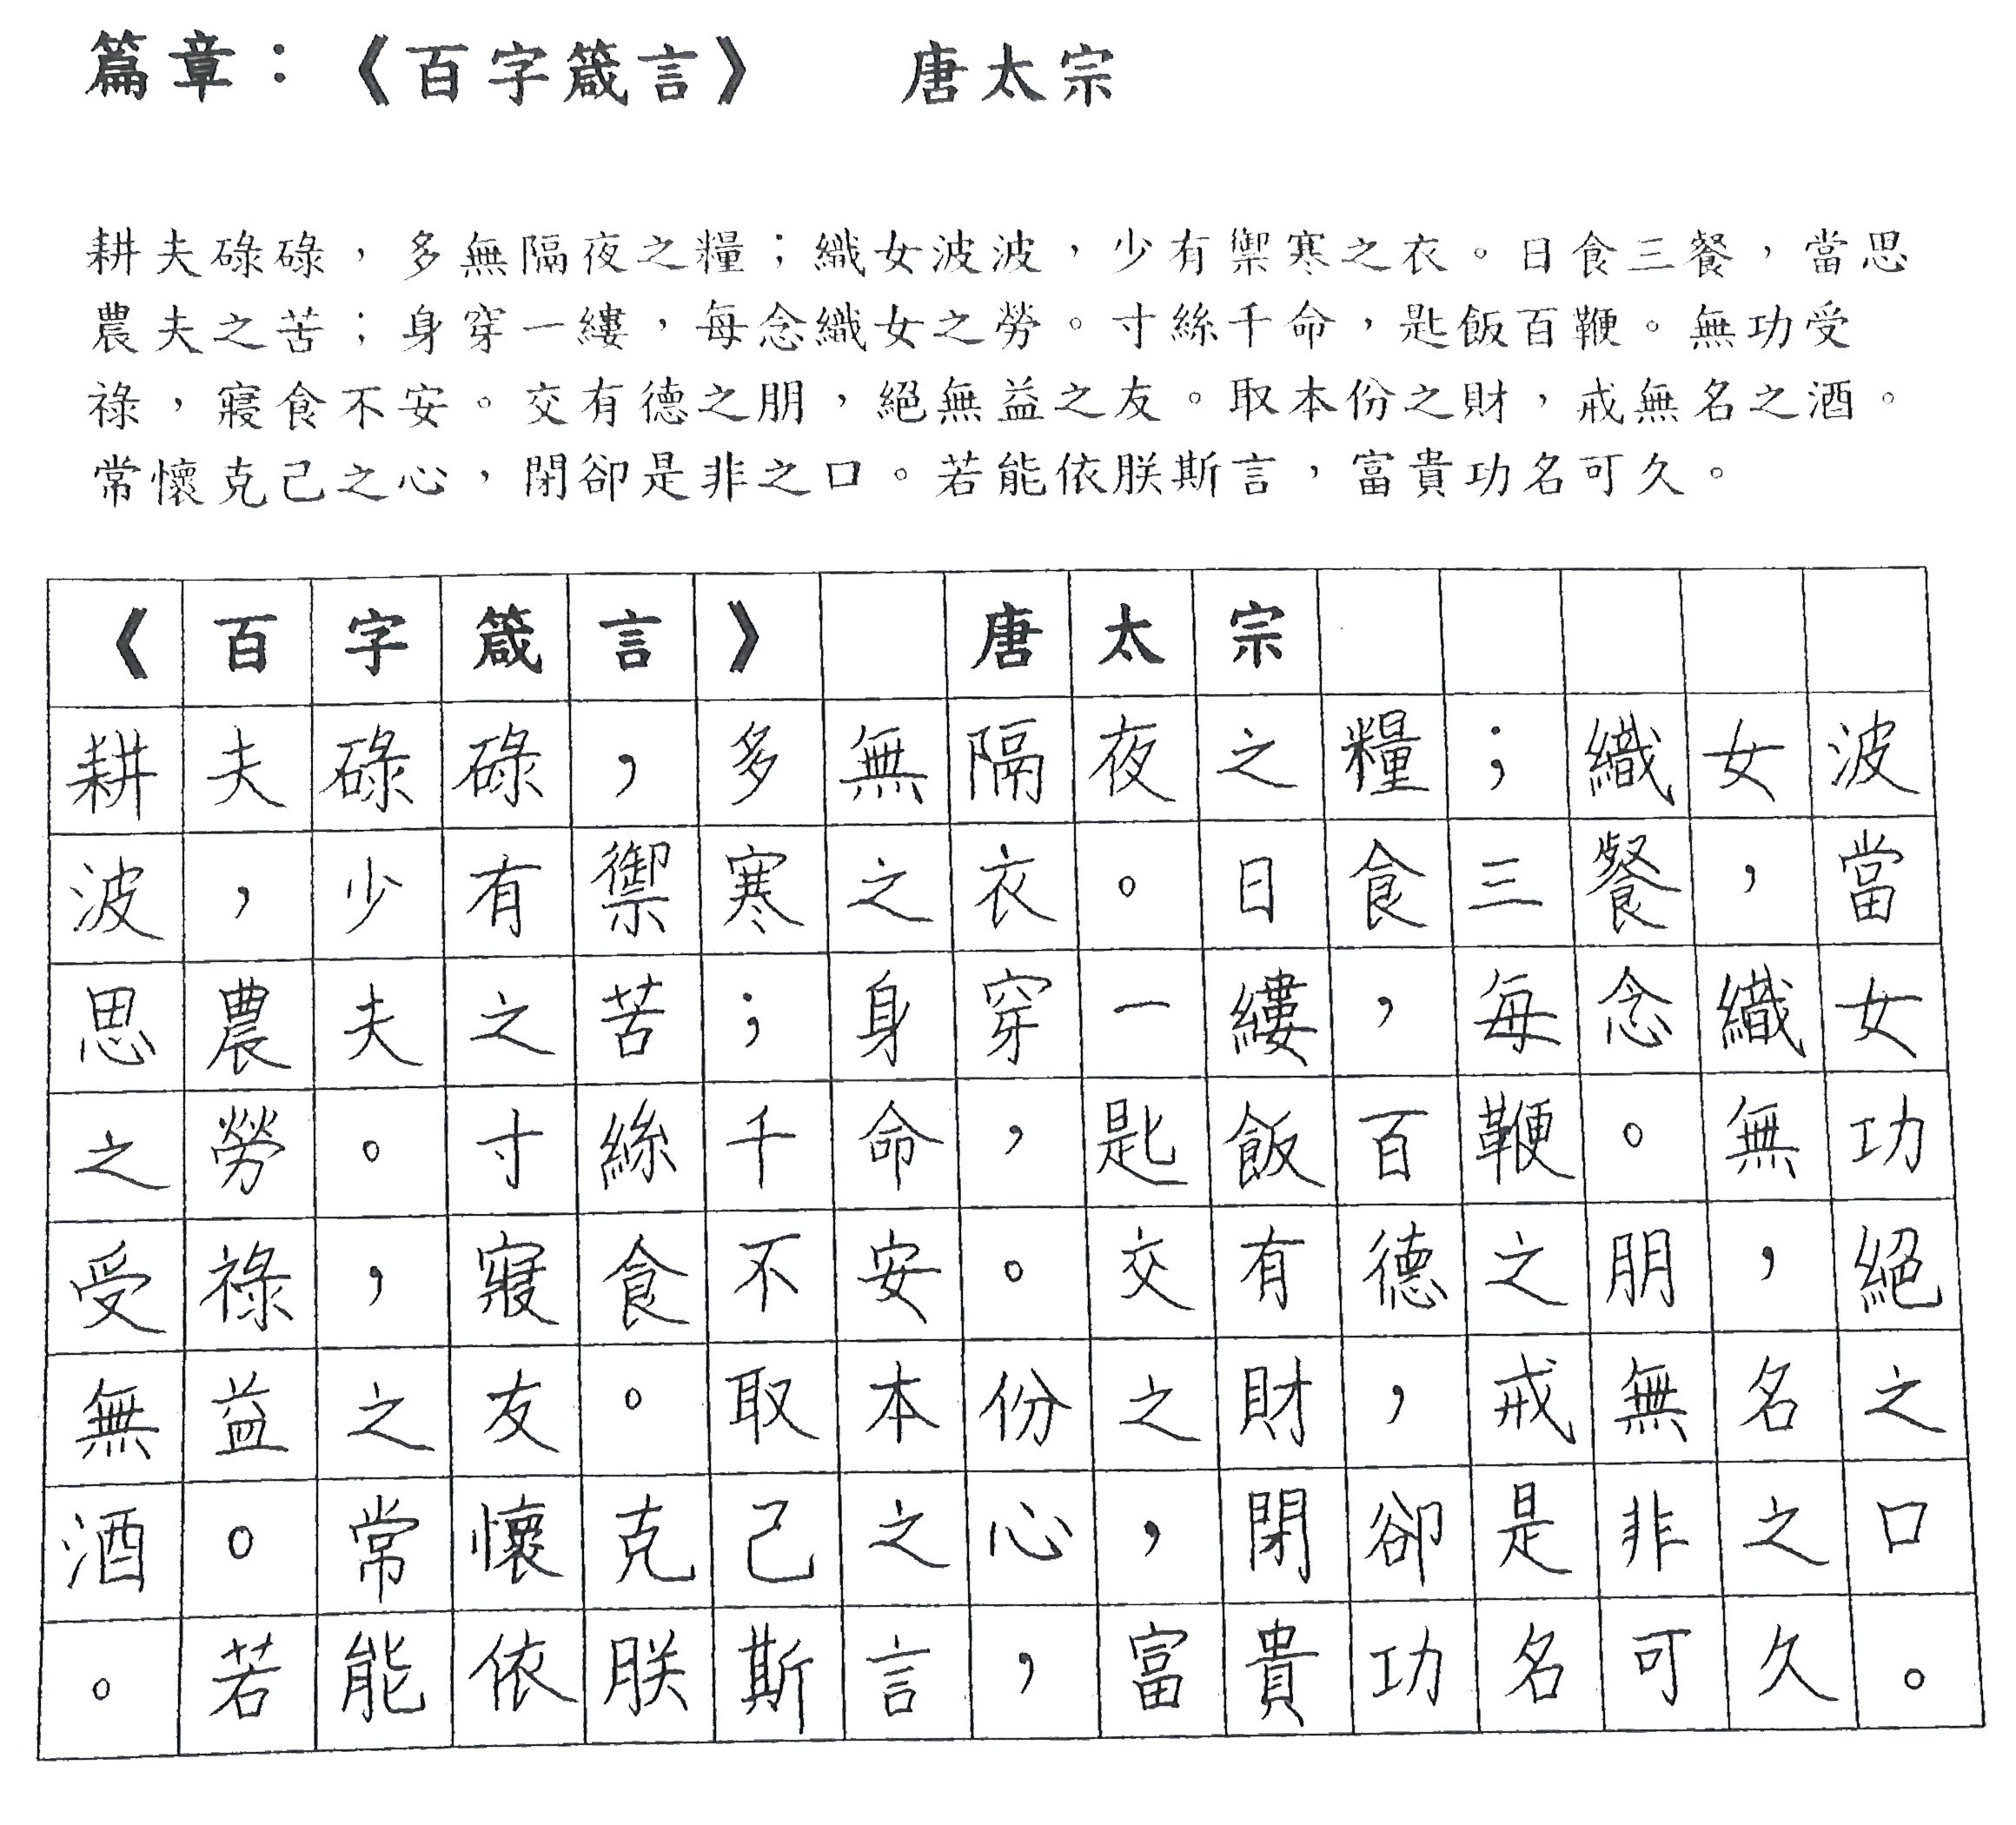 篇章：《百字箴言》　唐太宗
耕夫碌碌，多無隔夜之糧；織女波波，少有禦寒之衣。日食三餐，當思
農夫之苦；身穿一縷，每念織女之勞。寸絲千命，匙飯百鞭。無功受
祿，寢食不安。交有德之朋，絕無益之友。取本份之財，戒無名之酒。
常懷克己之心，閉卻是非之口。若能依朕斯言，富貴功名可久。
《百字箴言》　唐太宗
耕夫碌碌，多無隔夜之糧；織女波
波，少有禦寒之衣。日食三餐，當
思農夫之苦；身穿一縷，每念織女
之勞。寸絲千命，匙飯百鞭。無功
受祿，寢食不安。交有德之朋，絕
無益之友。取本份之財，戒無名之
酒。常懷克己之心，閉卻是非之口
。若能依朕斯言，富貴功名可久。